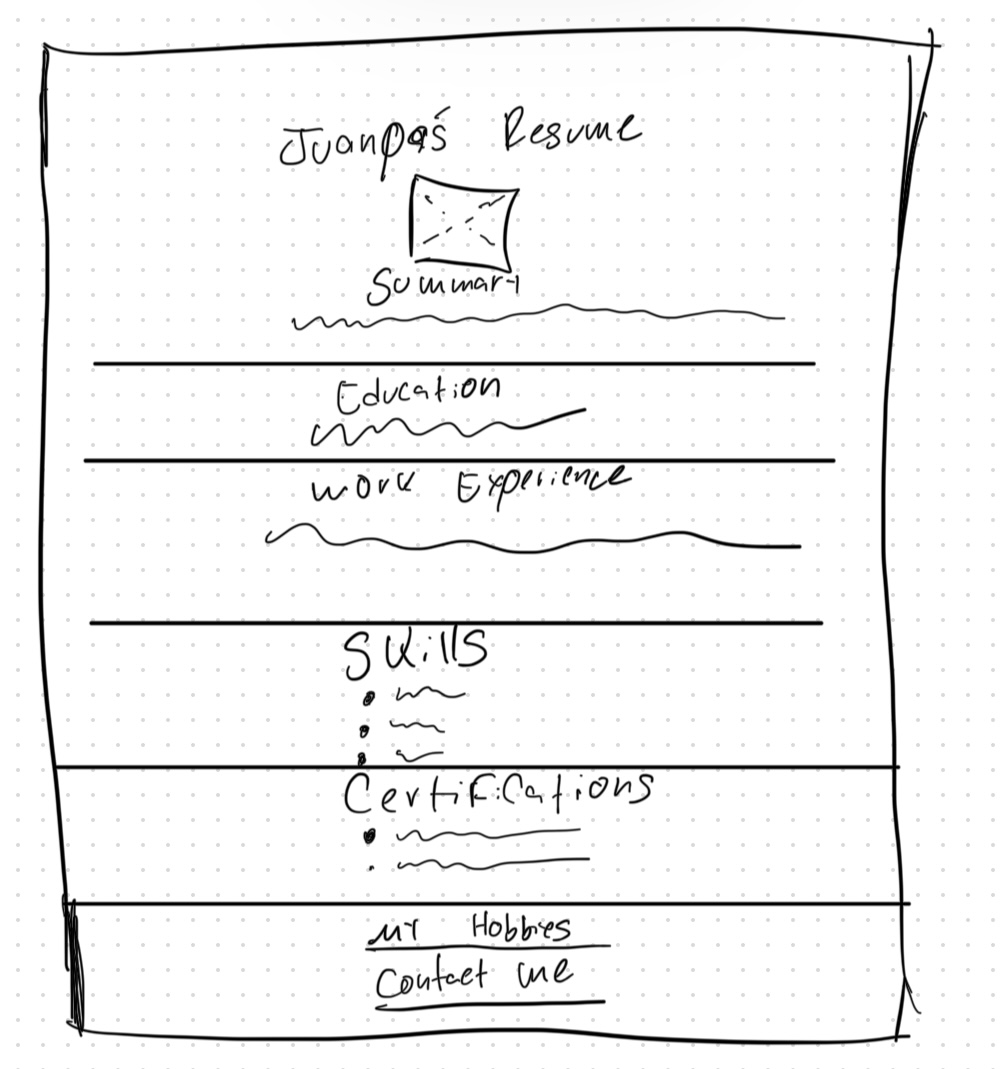 Juanpa's Resume
Summary
Education
Work Experience
Skills
Certifications
My Hobbies
Contact me